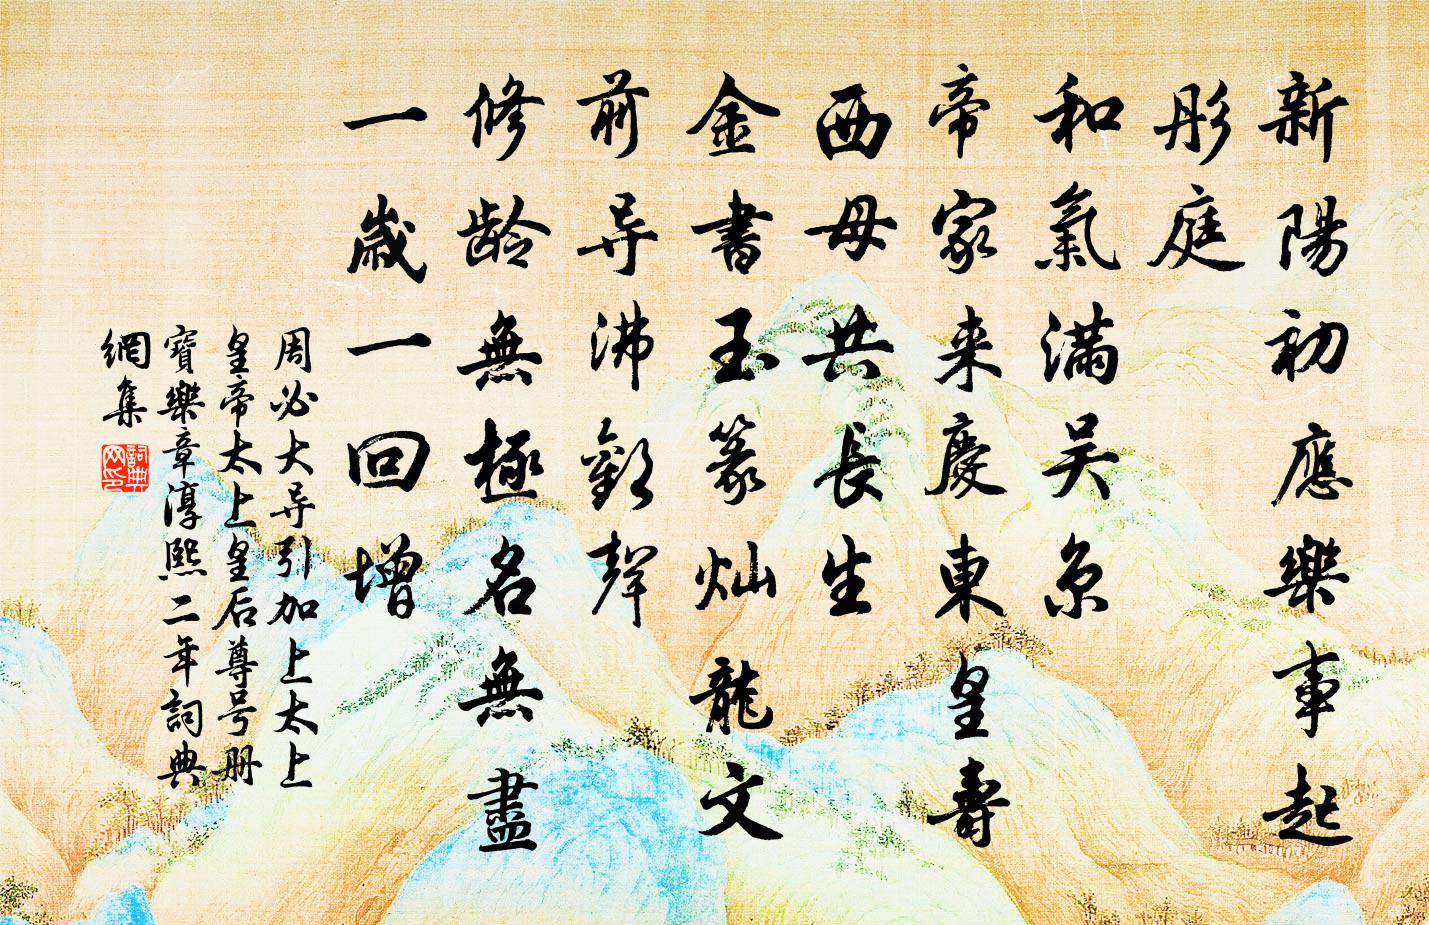 新陽初應樂事起
彤庭
和氣滿吴京
帝家来慶東皇壽
西母共長生
金書玉篆灿龍文
前导沸歡聲
修龄無極名無盡
一歲一回增
周必大导引加上太上
皇帝太上皇后尊号册
寶樂章淳熙二年詞典
網集
詞典网印